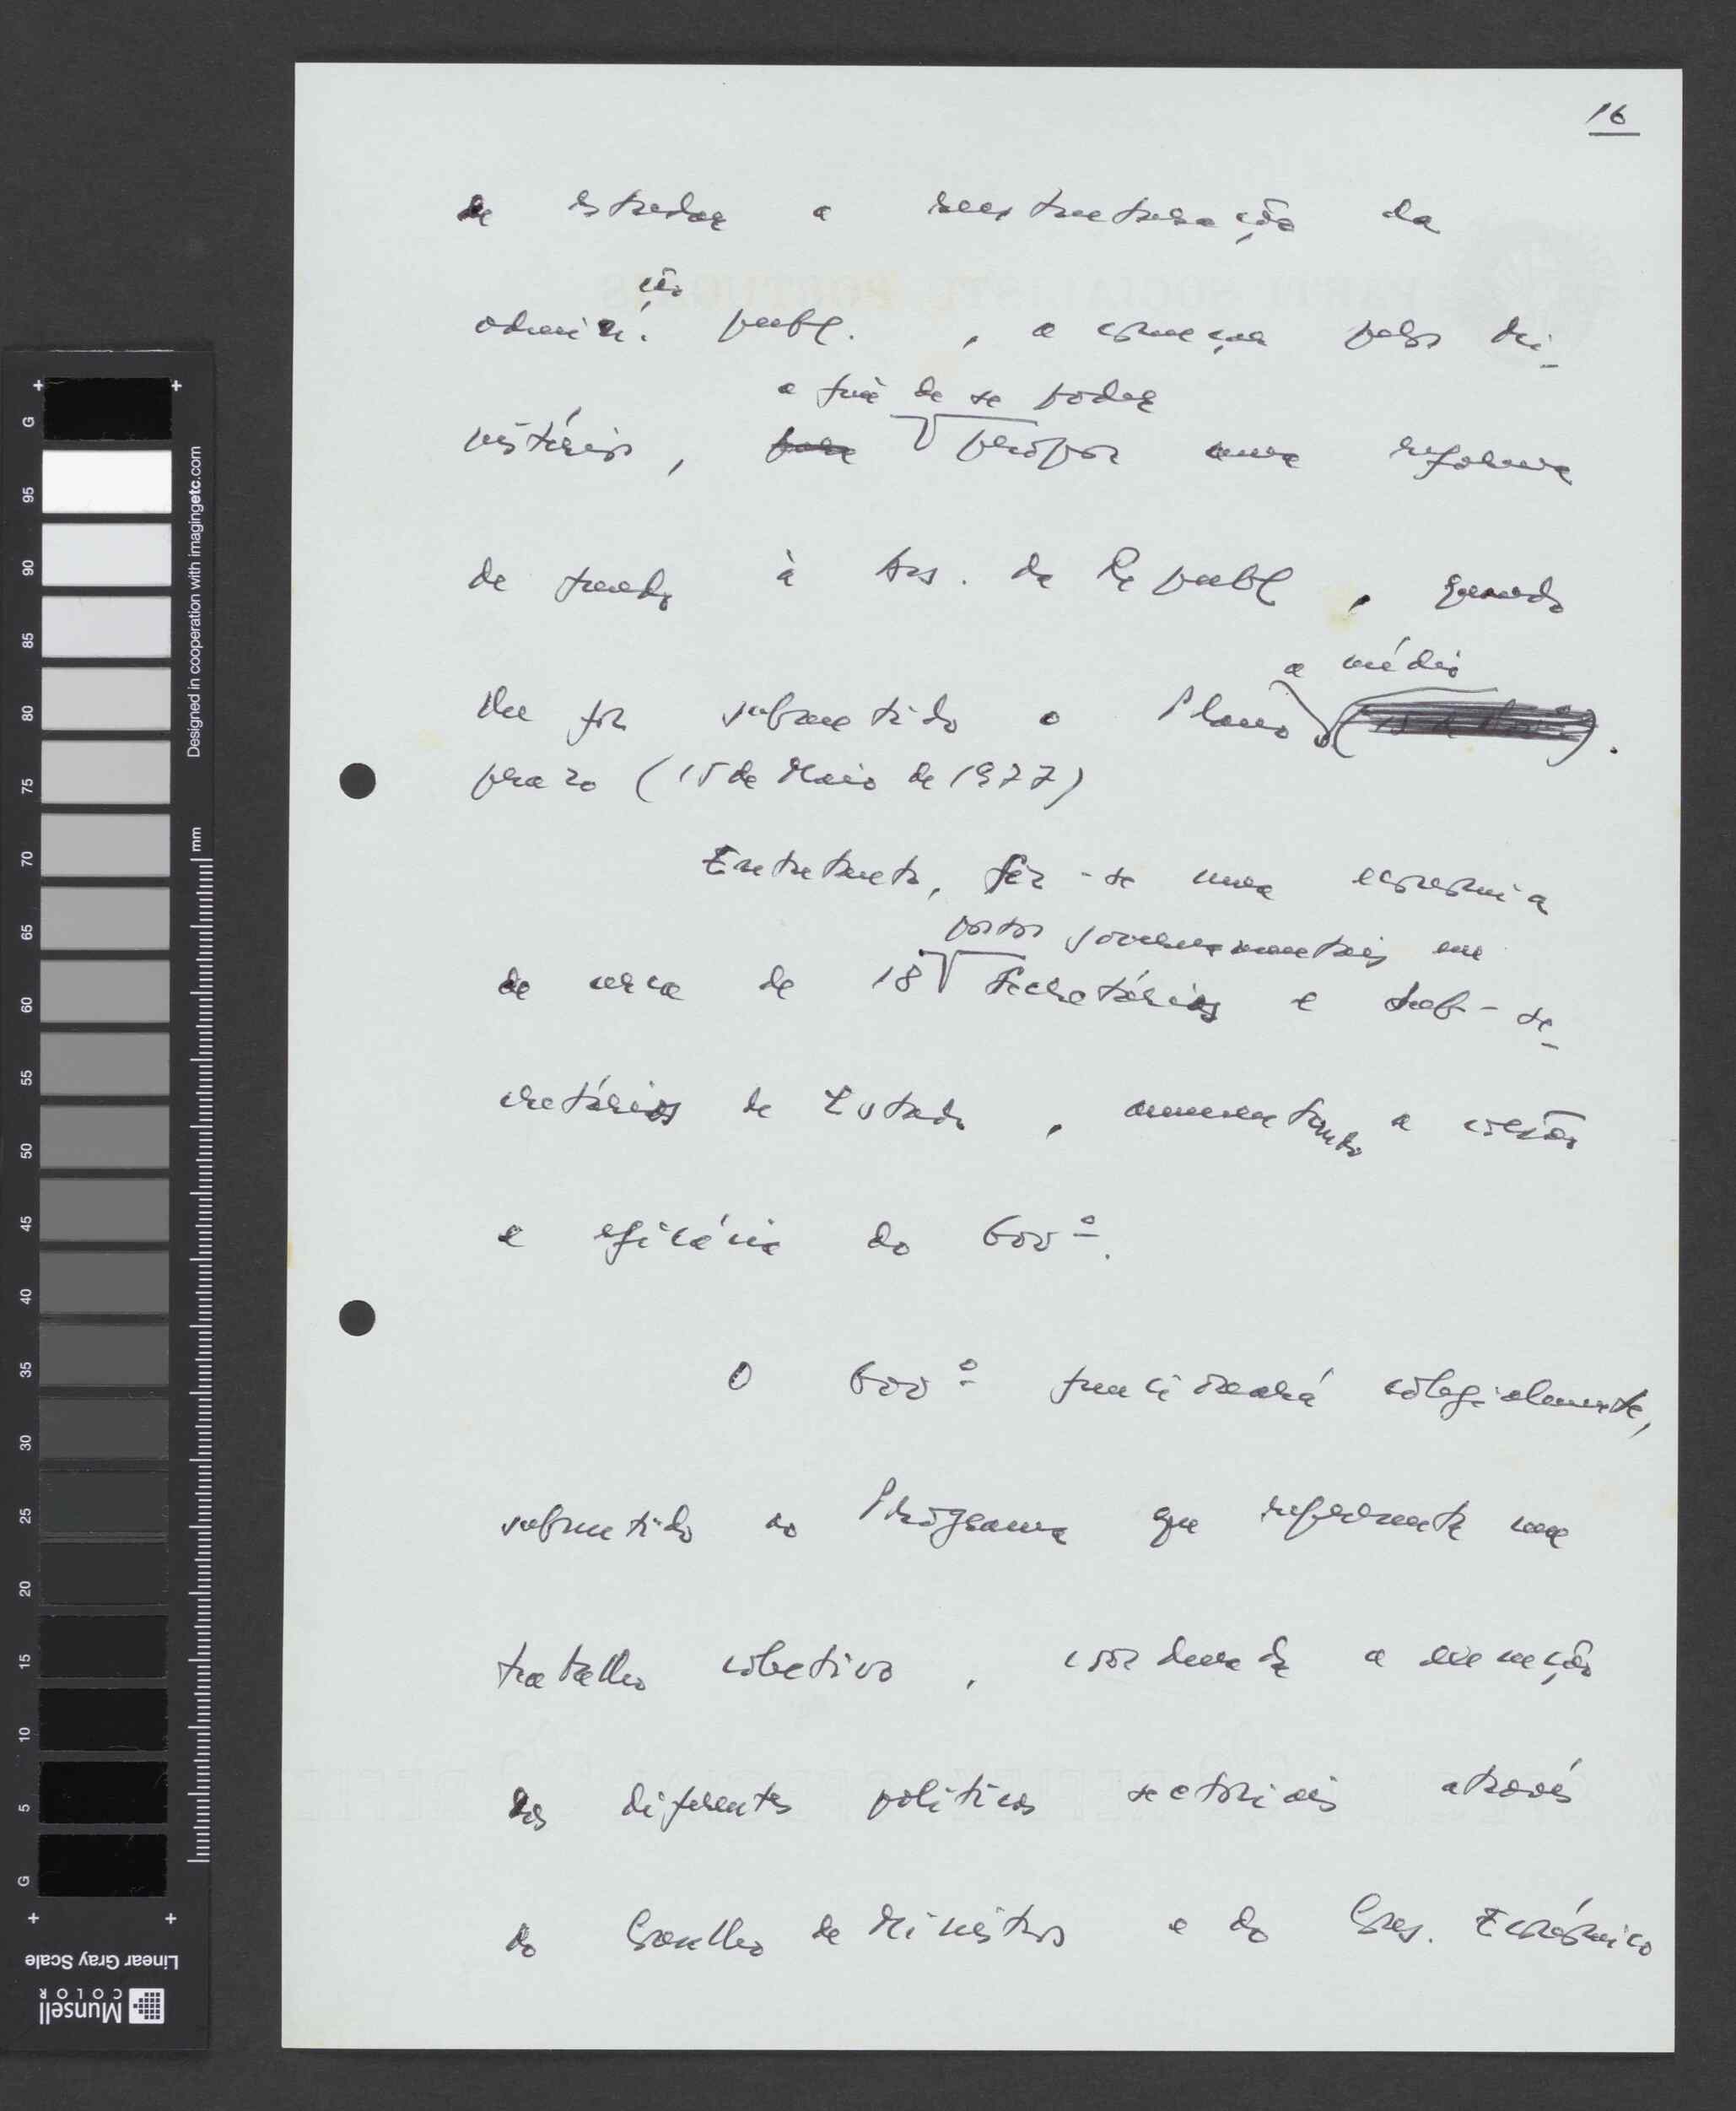 16
de estudar a reestruturação da
ção
admin. publ. , a começar pelos Mi-
a fim de se poder
nistérios, para propor uma reforma
de fundo à Ass. da Republ , quando
a médio
lhe for submetido o Plano
prazo (15 de Maio de 1977)
Entretanto, fez-se uma economia
postos governamentais em
de cerca de 18 Secretários e Sub-se-
cretários de Estado , aumentando a coesão
e eficácia do Govº.
O Govº funcionará colegialmente,
submetido ao Programa que representa um
trabalho colectivo , coordenada a execução
das diferentes políticas sectoriais através
do Conselho de Ministros e do Cons. Económico
G 95 90 85 80 75 70 65 60 55 50 45 40 35 30 25 20 15 10 5 G
Designed in cooperation with imagingetc.com
mm
Linear Gray Scale
Munsell
COLOR